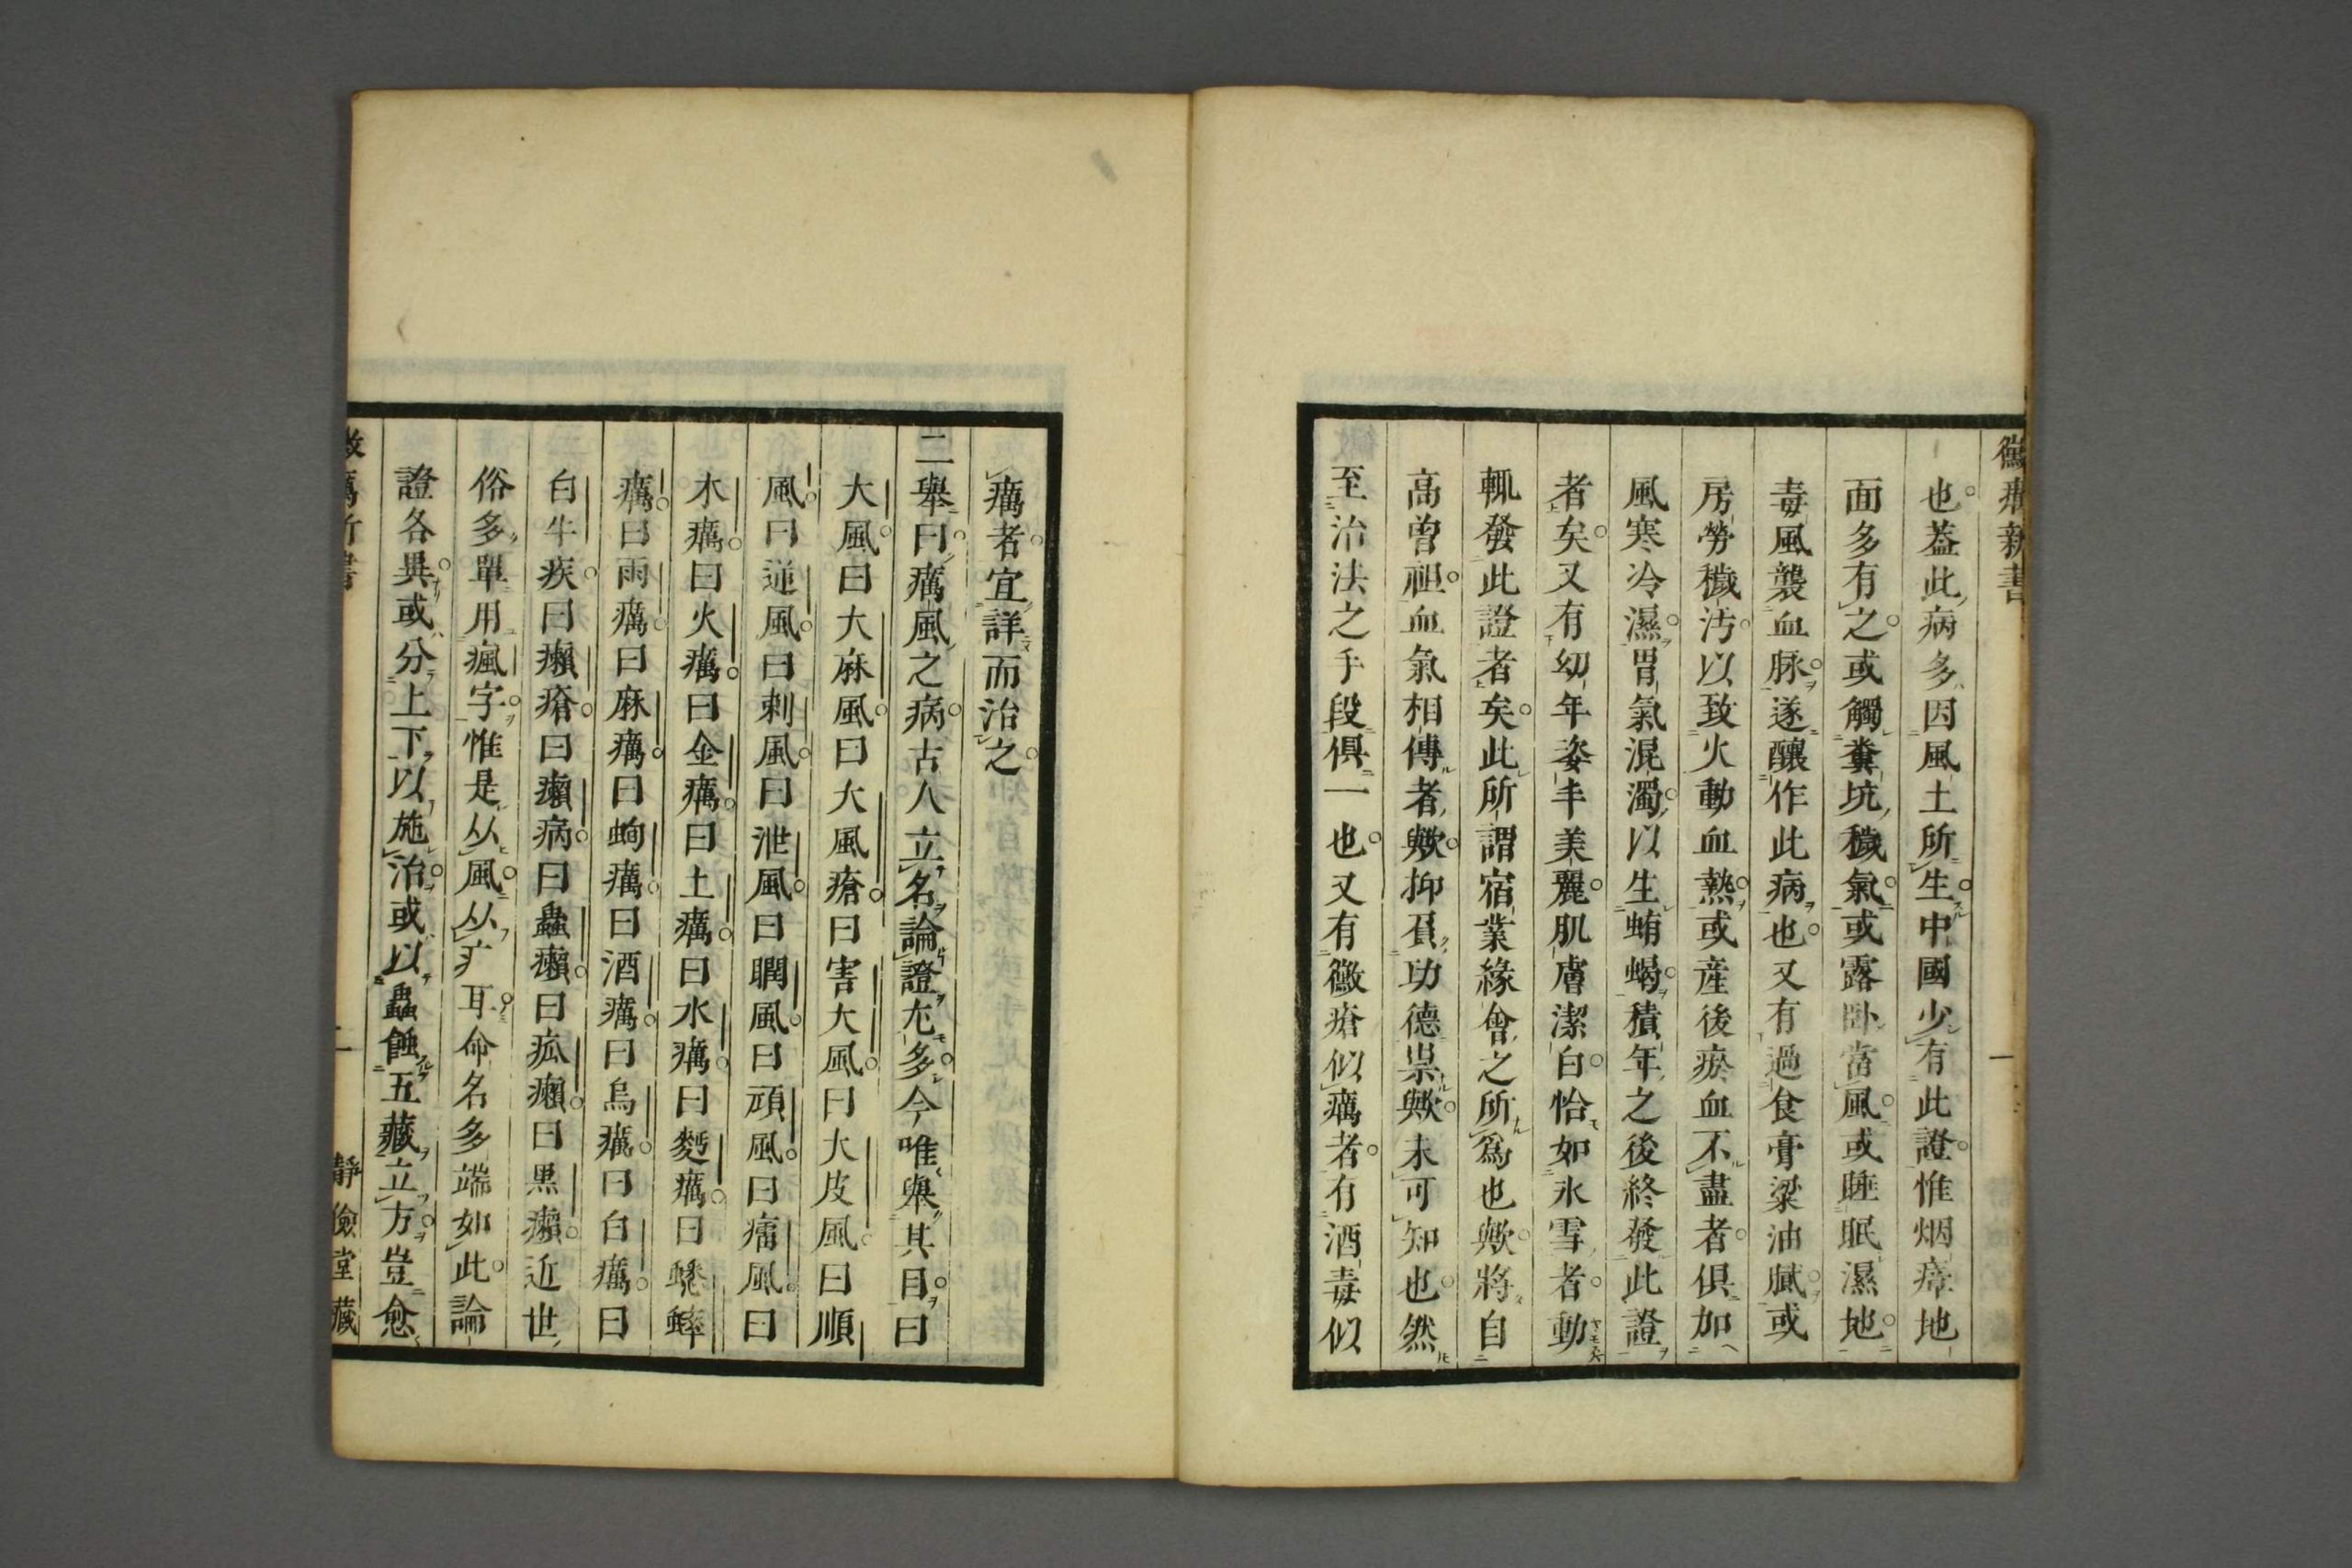 黴癘新書
一
也蓋此病多因風土所生中國少有此證惟烟瘴地
面多有之或觸糞坑穢氣或露臥當風或睡眠濕地
毒風襲血脉遂釀作此病也又有過食膏粱油膩或
房勞穢汚以致火動血熱或産後瘀血不盡者俱加
風寒冷濕胃氣混濁以生蛕蝎積年之後終發此證
者矣又有幼年姿丰美麗肌膚潔白恰如氷雪者動
輒發此證者矣此所謂宿業緣會之所爲也歟將自
高曾祖血氣相傳者歟抑負功德祟歟未可知也然
至治法之手段俱一也又有黴瘡似癘者有酒毒似
癘者宜詳而治之
二擧曰癘風之病古人立名論證尤多今唯擧其目曰
大風曰大麻風曰大風瘡曰害大風曰大皮風曰順
風曰逆風曰剌風曰泄風曰瞤風曰頑風曰癘風曰
木癘曰火癘曰金癘曰土癘曰水癘曰麪癘曰蟋蟀
癘曰雨癘曰麻癘曰蚼癘曰酒癘曰烏癘曰白癘曰
白牛疾曰癩瘡曰癩病曰蟲癩曰疣癩曰黒癩近世
俗多單用瘋字惟是从風从疒耳命名多端如此論
證各異或分上下以施治或以蟲蝕五藏立方豈愈
二
靜儉堂藏